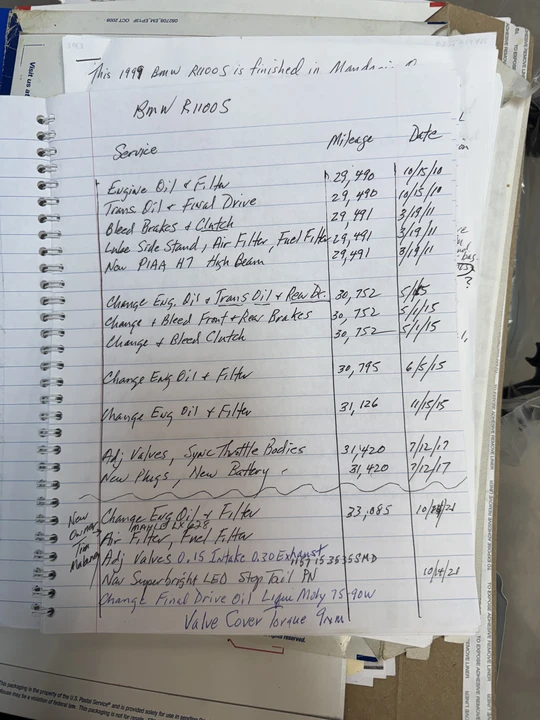 This 1999 BMW R1100S is finished in Mandarin
BMW R1100S
Service Mileage Date
Engine Oil & Filter 29,490 10/15/10
Trans Oil & Final Drive 29,490 10/15/10
Bleed Brakes & Clutch 29,491 3/19/11
Lube Side Stand, Air Filter, Fuel Filter 29,491 3/19/11
New PIAA H7 High Beam 29,491 3/19/11
Change Eng. Oil & Trans Oil & Rear Dr. 30,752
Change & Bleed Front & Rear Brakes 30,752 5/1/15
Change & Bleed Clutch 30,752 5/1/15
Change Eng Oil & Filter 30,795 6/5/15
Change Eng Oil & Filter 31,126 11/15/15
Adj Valves, Sync Throttle Bodies 31,420 7/12/17
New Plugs, New Battery 31,420 7/12/17
New Owner Tim
Change Eng Oil & Filter 33,085
MAHLE
Air Filter, Fuel Filter
Adj Valves 0.15 Intake 0.30 Exhaust
1157 153535SMD
New Superbright LED Stop Tail PN 10/4/21
Change Final Drive Oil Liqui Moly 75-90W
Valve Cover Torque 9nm
Visit us at
OCT 2009
This packaging is the property of the U.S. Postal Service® and is provided solely for use in sending